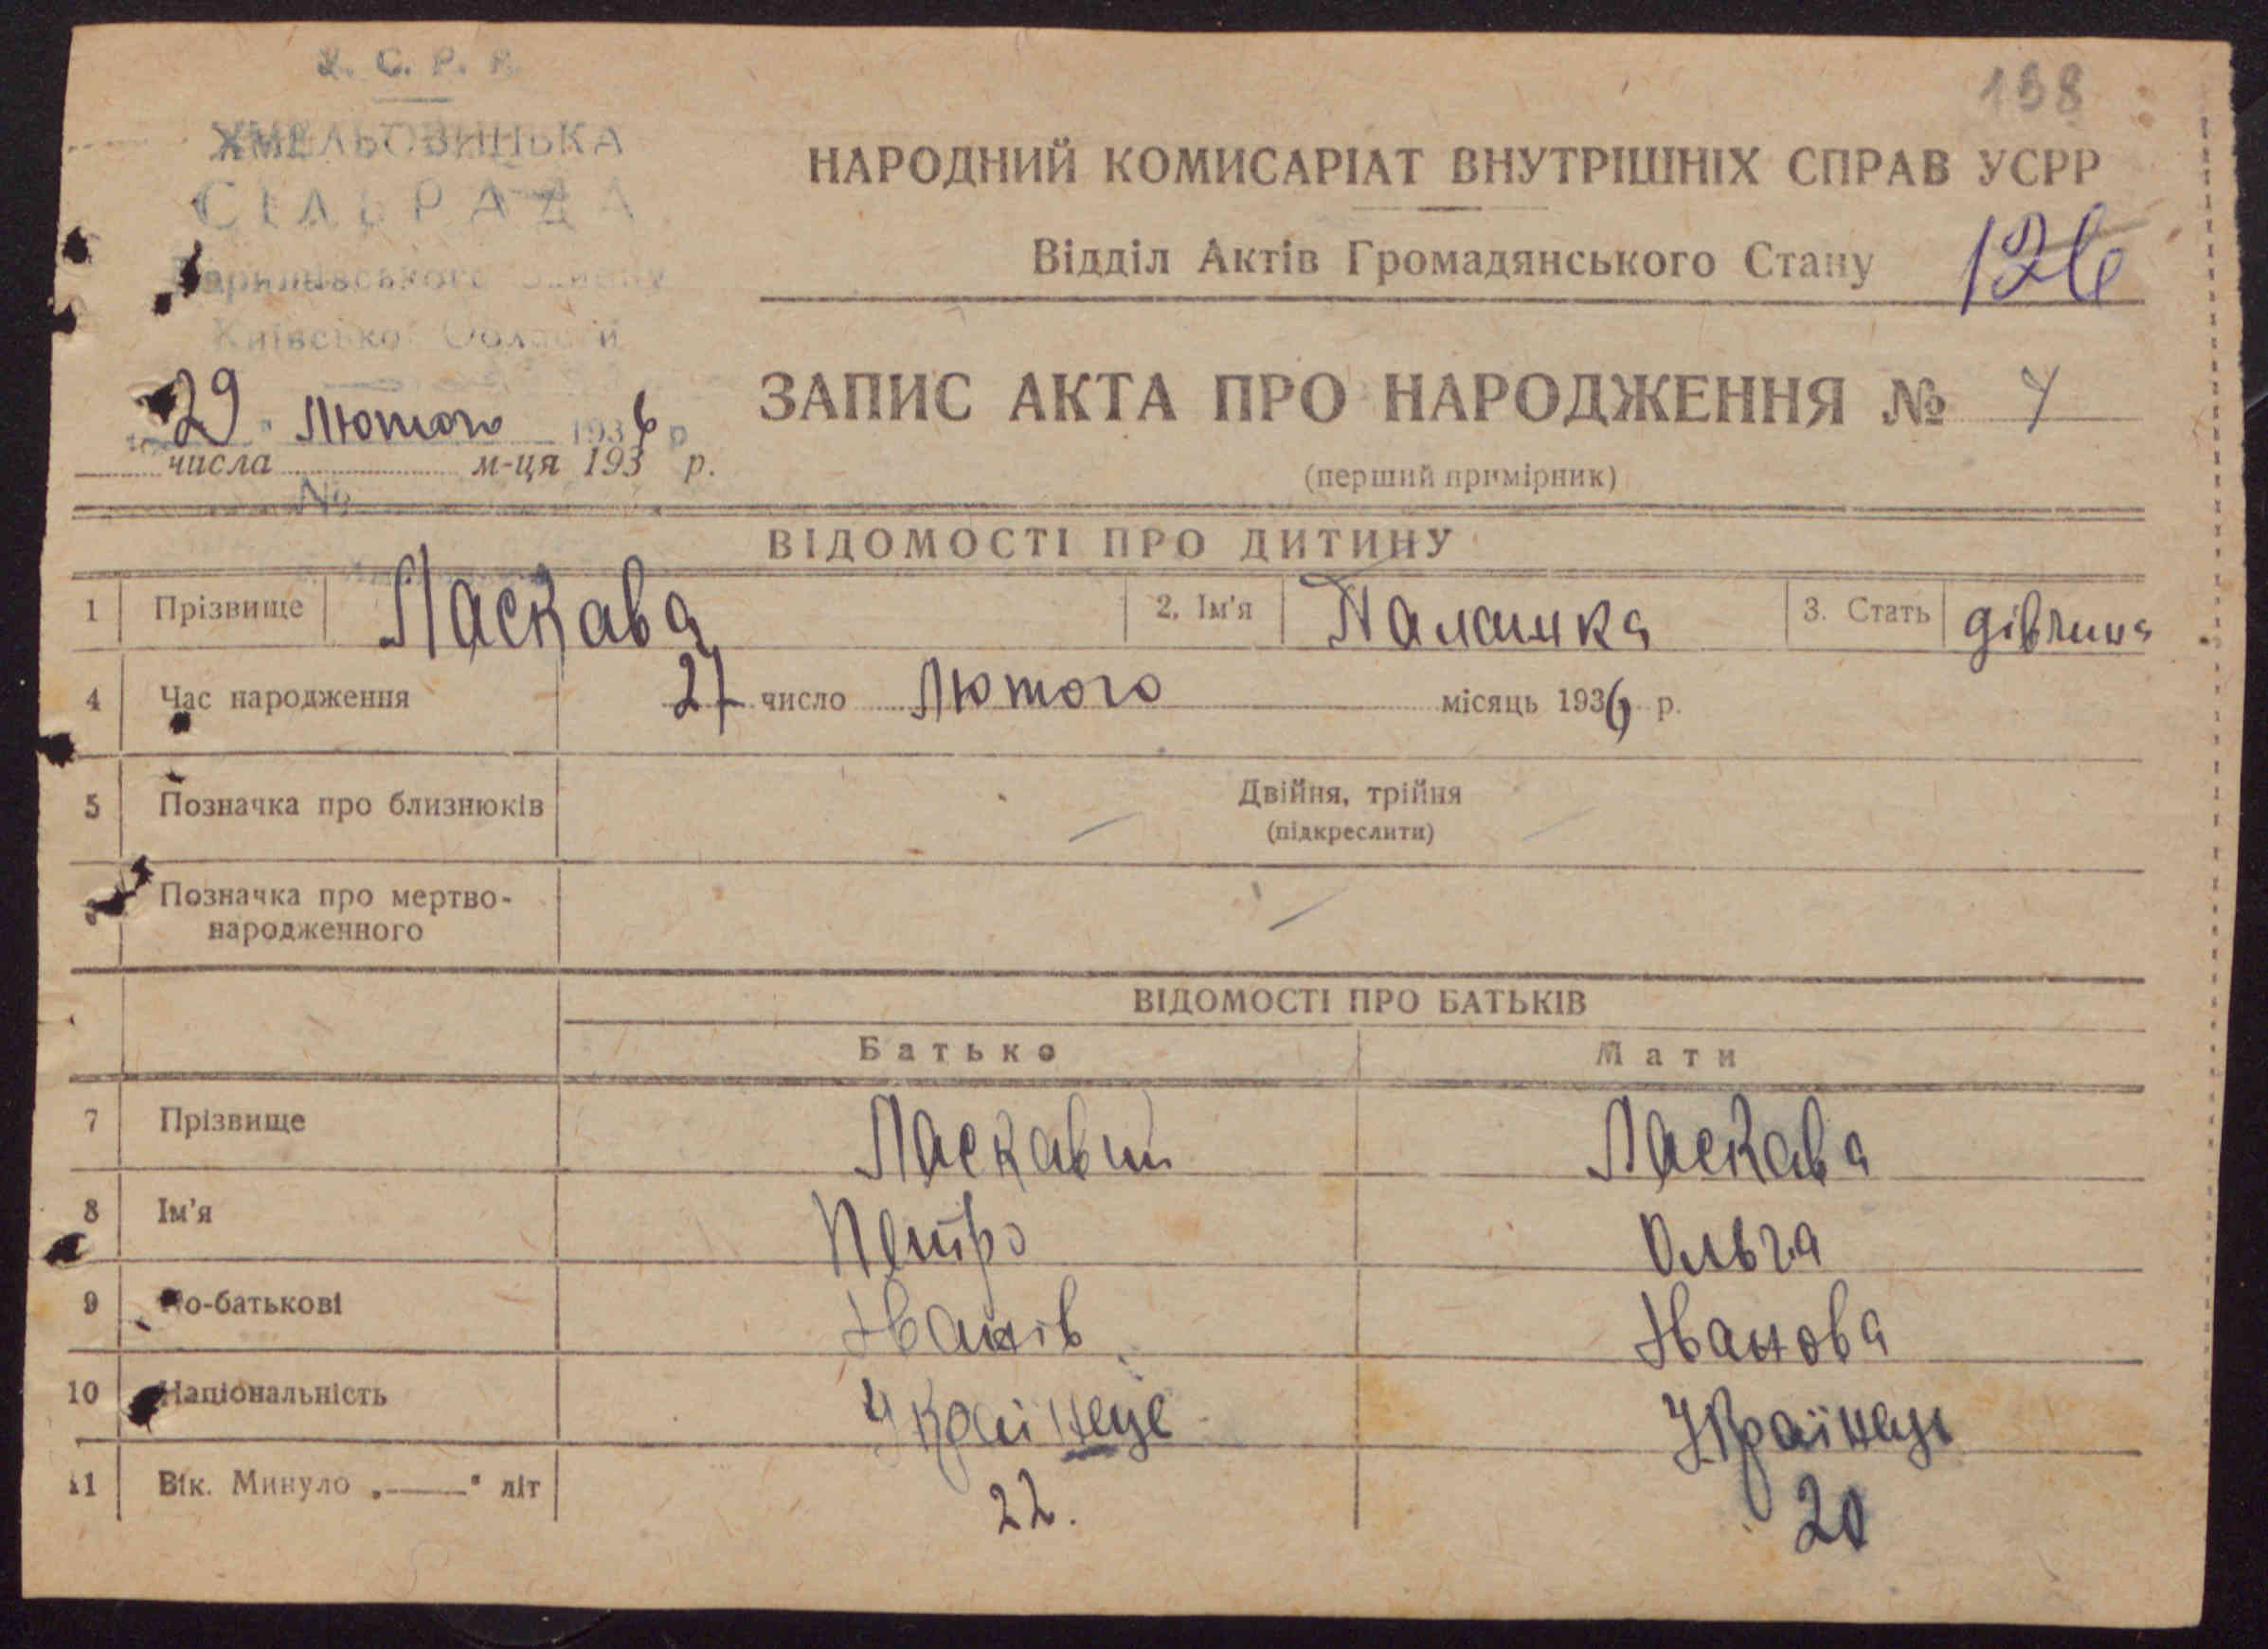 У. С. Р. Р.
ХМЕЛЬОВИЦЬКА
СІЛЬРАДА
Баришівського
Київської Области
29 " Лютого 1936 р
числа м-ця 193 р.
№
138
НАРОДНИЙ КОМИСАРІАТ ВНУТРІШНІХ СПРАВ УСРР
Відділ Актів Громадянського Стану 126
ЗАПИС АКТА ПРО НАРОДЖЕННЯ № 7
(перший примірник)
ВІДОМОСТІ ПРО ДИТИНУ
1 Прізвище Ласкава 2. Ім'я Палашка 3. Стать дівчина
4 Час народження 27 число Лютого місяць 1936 р.
5 Позначка про близнюків Двійня, трійня
(підкреслити)
Позначка про мертво-
народженного
ВІДОМОСТІ ПРО БАТЬКІВ
Батько Мати
7 Прізвище Ласкавий Ласкава
8 Ім'я Петро Ольга
9 По-батькові Іванів Іванова
10 Національність Українець Українець
11 Вік. Минуло „——" літ 22. 20